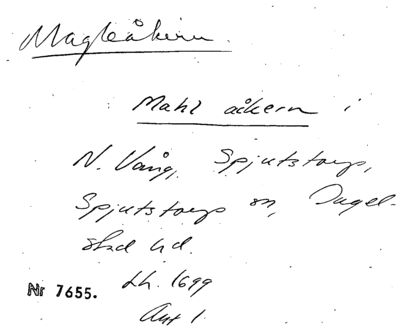 Magleåkern.
Mahl åkern i
N. Vång, Spjutstorp,
Spjutstorp sn, Ingel-
stad hd.
Lh. 1699
Nr 7655.
Akt 1.